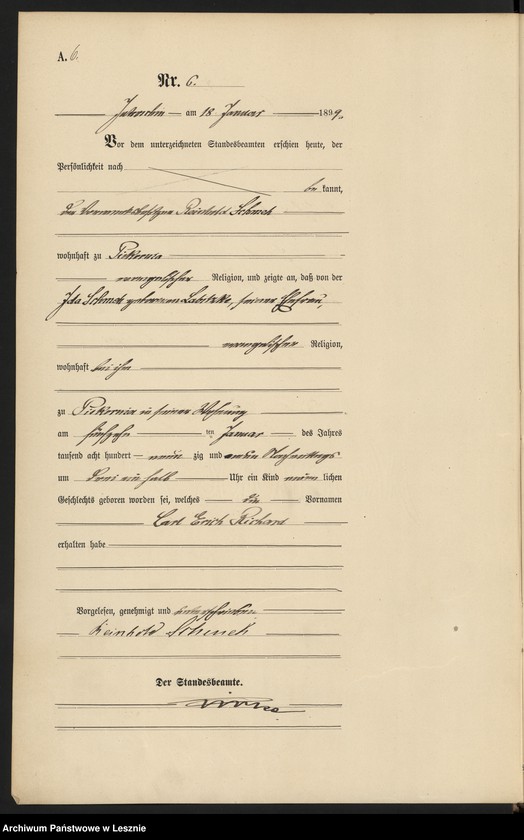 A. 6.
Nr. 6.
am 18 Januar 1899.
Vor dem unterzeichneten Standesbeamten erschien heute, der
Persönlichkeit nach
be kannt,
Schmeh
wohnhaft zu
evangelischer Religion, und zeigte an, daß von der
Ida Schmeh geborenen seiner Ehefrau,
evangelischer Religion,
wohnhaft bei ihm
zu in seiner Wohnung
am fünfzehn ten Januar des Jahres
tausend acht hundert neun zig und neun Nachmittags
um drei ein halb Uhr ein Kind männ lichen
Geschlechts geboren worden sei, welches die Vornamen
Carl Erich Richard
erhalten habe
Vorgelesen, genehmigt und unterschrieben
Reinhold Schmeh
Der Standesbeamte.
Archiwum Państwowe w Lesznie